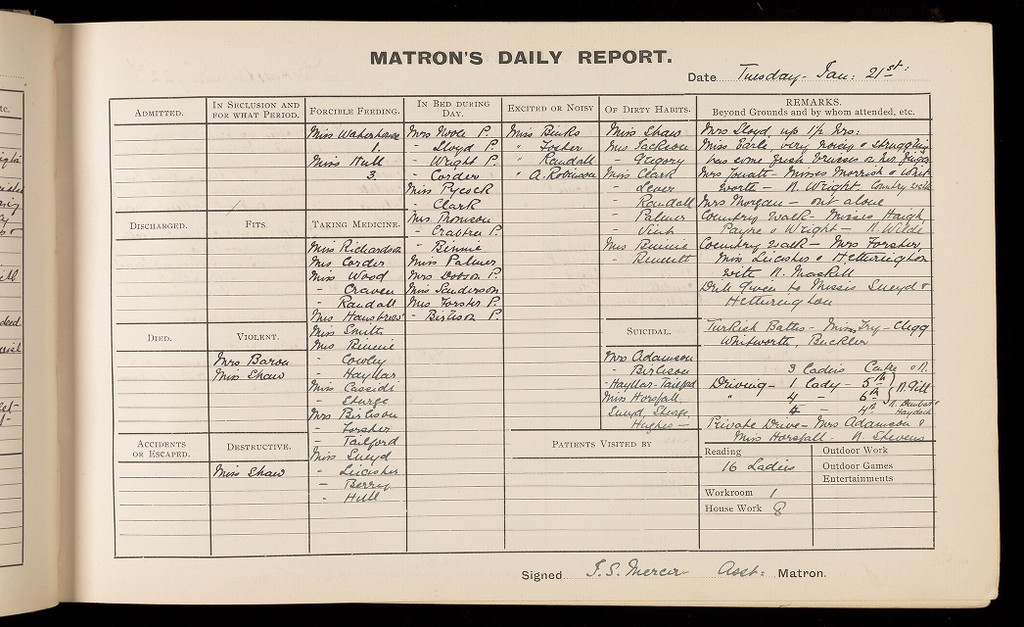 MATRON'S DAILY REPORT.
Date Tuesday- Jan: 21st:
ADMITTED.
IN SECLUSION AND
FOR WHAT PERIOD.
FORCIBLE FEEDING.
Miss Waterhouse
1.
Miss Hull
3.
IN BED DURING
DAY.
Mrs Noble P.
- Lloyd P.
- Wright P.
- Corder
Miss Pycock
- Clark
Mrs Thomson
- Crabtree P.
- Binnie
Miss Palmer
Mrs Dobson P.
Miss Sanderson
Mrs Forster P.
- Birtison P.
EXCITED OR NOISY
Miss Binks
" Foster
" Randall
" A. Robinson
OF DIRTY HABITS.
Miss Shaw
Mrs Jackson
- Gregory
Miss Clark
- Lever
- Randall
- Palmer
- Vink
Mrs Binnie
- Bennett
REMARKS.
Beyond Grounds and by whom attended, etc.
Mrs Lloyd, up 1½ hrs:
Miss Earle, very noisy & struggling
has some fresh bruises on her
Mrs - Misses Morrish & Whit
worth - N. Wright. Country walk
Mrs Morgan - out alone
Country walk - Misses Haigh,
Payne & Wright - N. Wilde
Country walk - Mrs Forsher,
Miss Leicester & Hetherington
with N. Maskill
Drill given to Misses Sneyd &
Hetherington
Turkish Baths - Misses Fry - Clegg
Whitworth, Buckler
3 Ladies Centre & N.
Driving - 1 Lady - 5th
" 4 - 6th N. Pitt
4 - 4th
Private Drive - Mrs Adamson &
Miss Horsfall - N. Stevens
DISCHARGED.
FITS.
TAKING MEDICINE.
Miss Richardson
Mrs Corder
Miss Wood
- Craven
- Randall
Mrs
Miss Smith
Mrs Binnie
- Cowley
- Hayllar
Miss Cassidi
- Sturge
Mrs Birtison
- Forsher
- Tailford
Miss Sneyd
- Leicester
- Berry
- Hull
DIED.
VIOLENT.
Mrs Baron
Miss Shaw
SUICIDAL.
Mrs Adamson
- Birtison
- Hayllar - Tailford
Miss Horsfall
Sneyd, Sturge,
Hughes -
ACCIDENTS
OR ESCAPED.
DESTRUCTIVE.
Miss Shaw
PATIENTS VISITED BY
Reading
16 Ladies
Workroom 1
House Work 8
Outdoor Work
Outdoor Games
Entertainments
Signed J.S. Mercer Asst: Matron.